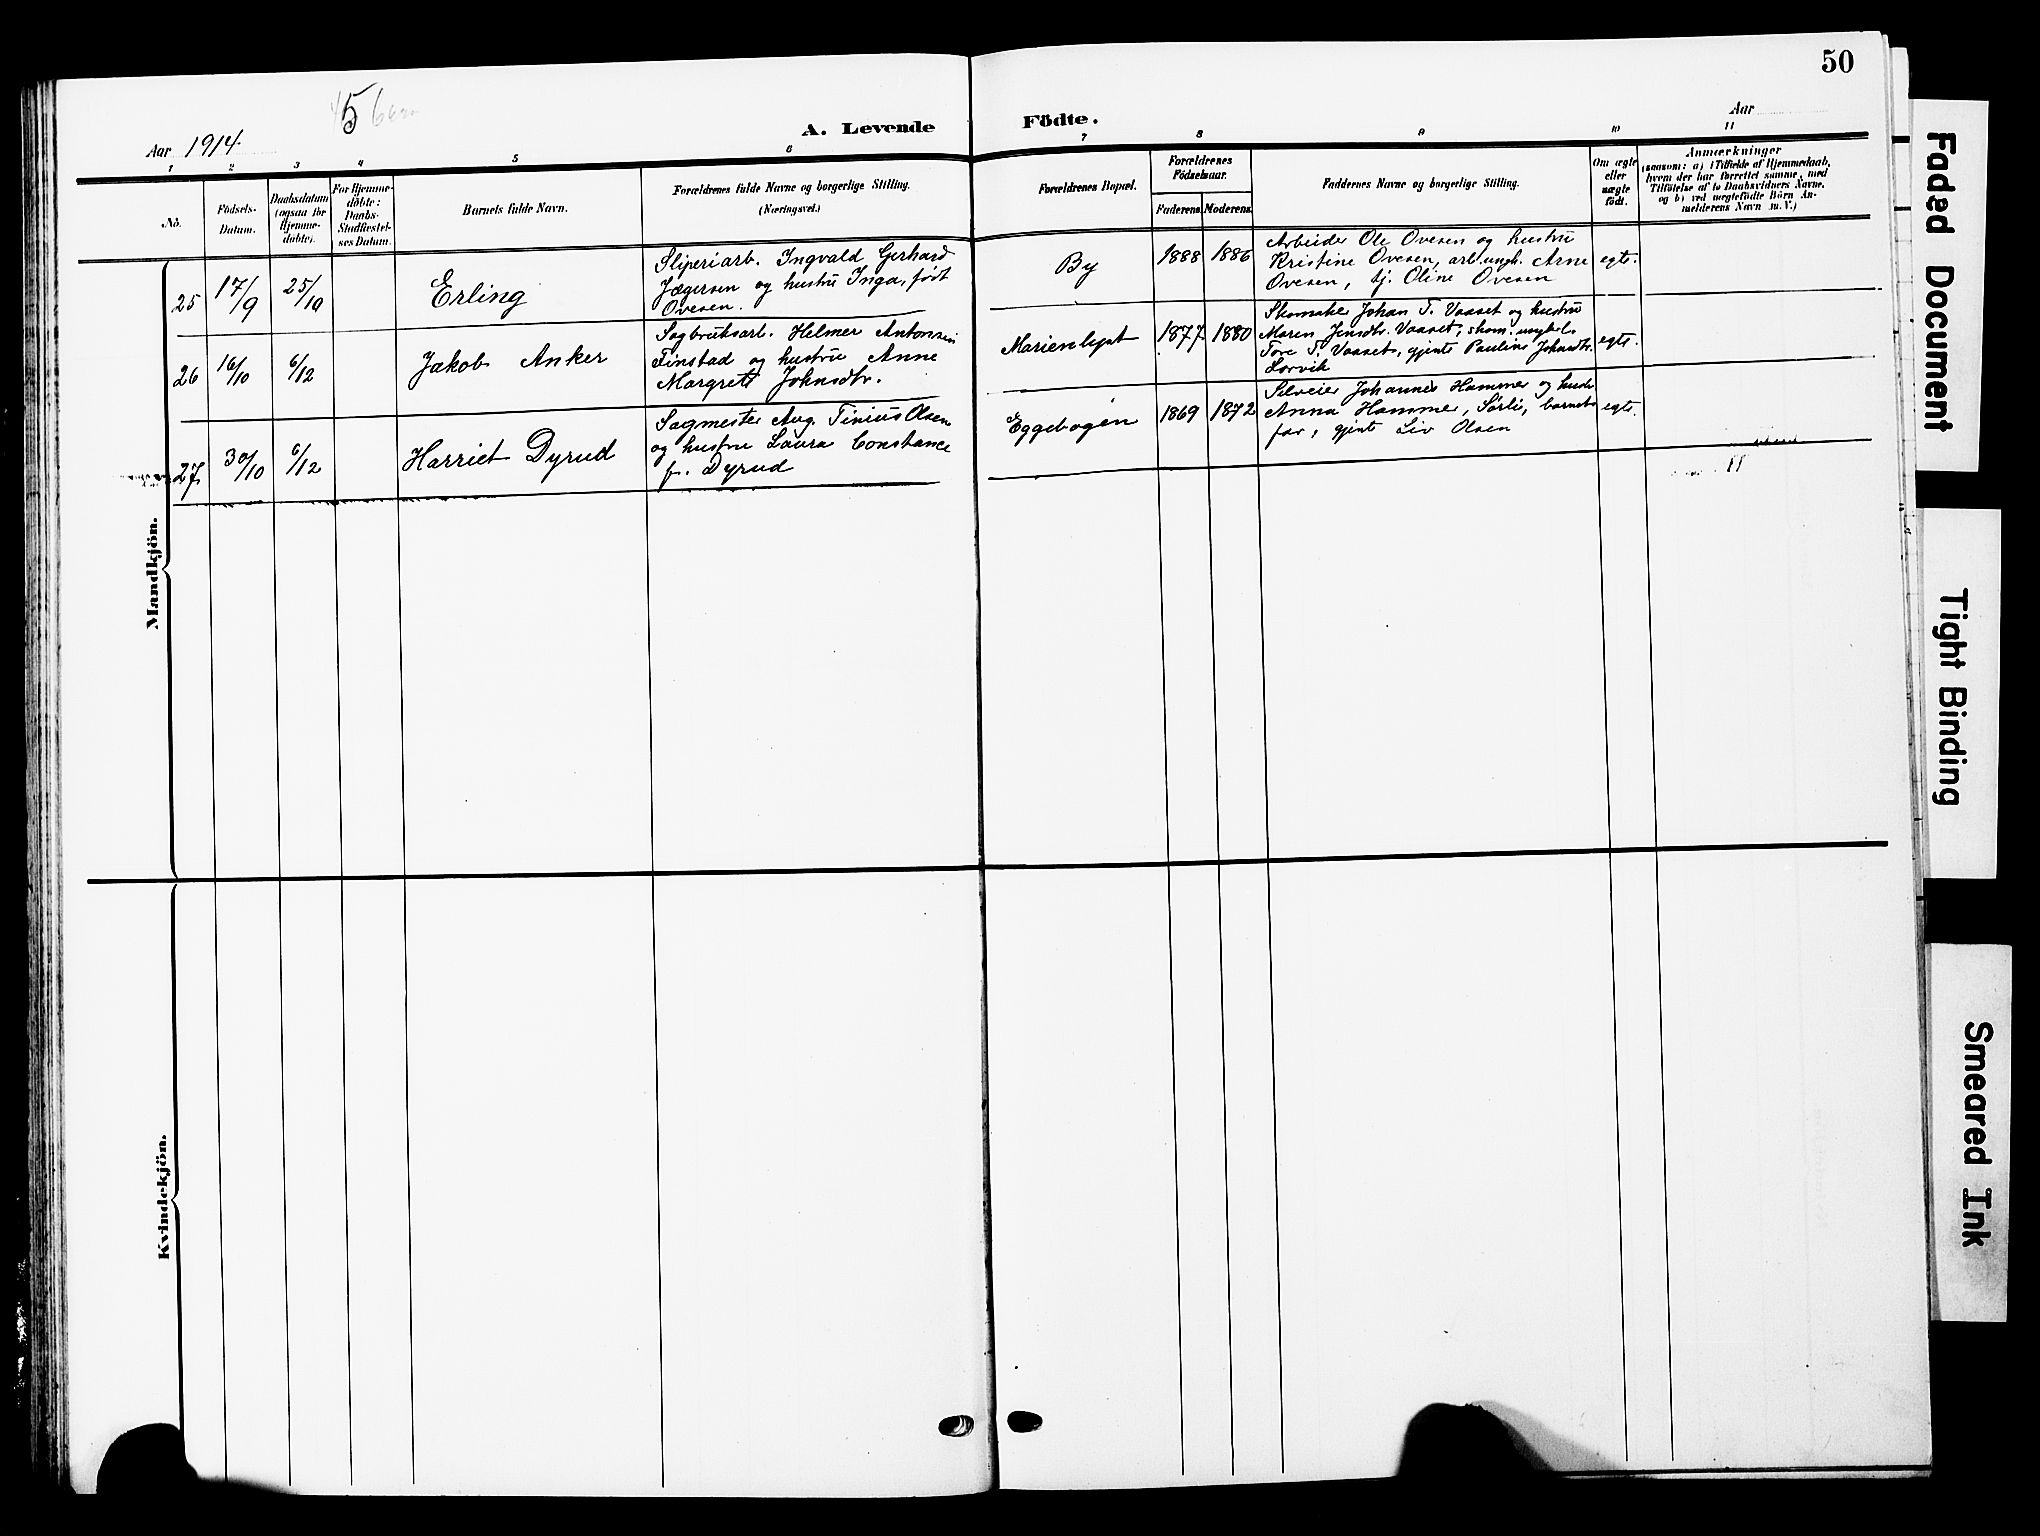 50
5
Aar 1914.
A. Levende
Födte.
Aar
1 2 3 4 5 6
7 8 9 10 11
No.
Födsels-
Datum.
Daabsdatum
(ogsaa for
Hjemme-
döbte).
For Hjemme-
döbte:
Daabs-
Stadfæstel-
ses Datum.
Barnets fulde Navn.
Forældrenes fulde Navne og borgerlige Stilling.
(Næringsvei.)
Forældrenes Bopæl.
Forældrenes
Födselsaar.
Faderens. Moderens.
Faddernes Navne og borgerlige Stilling.
Om ægte
eller
uægte
födt.
Anmærkninger
(saasom: a) i Tilfælde af Hjemmedaab,
hvem der har forrettet samme, med
Tilföielse af to Daabsvidners Navne,
og b) ved uægtefödte Börn An-
melderens Navn m. V.)
Mandkjön.
25 17/9 25/10 Erling
Sliperiarb. Ingvald Gerhard
Jægersen og hustru Inga, født
Ovesen.
By 1888 1886
Arbeider Ole Ovesen og hustru
Kristine Ovesen, arb. ungk. Arne
Ovesen, tj. Oline Ovesen
egte.
26 16/10 6/12 Jakob Anker
Sagbruksarb. Helmer Antonsen
Finstad og hustru Anne
Margrete Johnsdtr.
Marienlyst 1877 1880
Skomaker Johan T. Vaaset og hustru
Maren Jensdtr. Vaaset, skom. ungkl.
Tore T. Vaaset, gjente Pauline Johansdtr.
Lorvik
egte.
27 30/10 6/12 Harriet Dyrud
Sagmester Aug. Tinius Olsen
og hustru Laura Constance
f. Dyrud
Eggebogen 1869 1872
Selveier Johannes Hammer og hustru
Anna Hammer, Sørli, barnets
far, gjente Liv Olsen
egte.
Kvindekjön.
Faded Document
Tight Binding
Smeared Ink